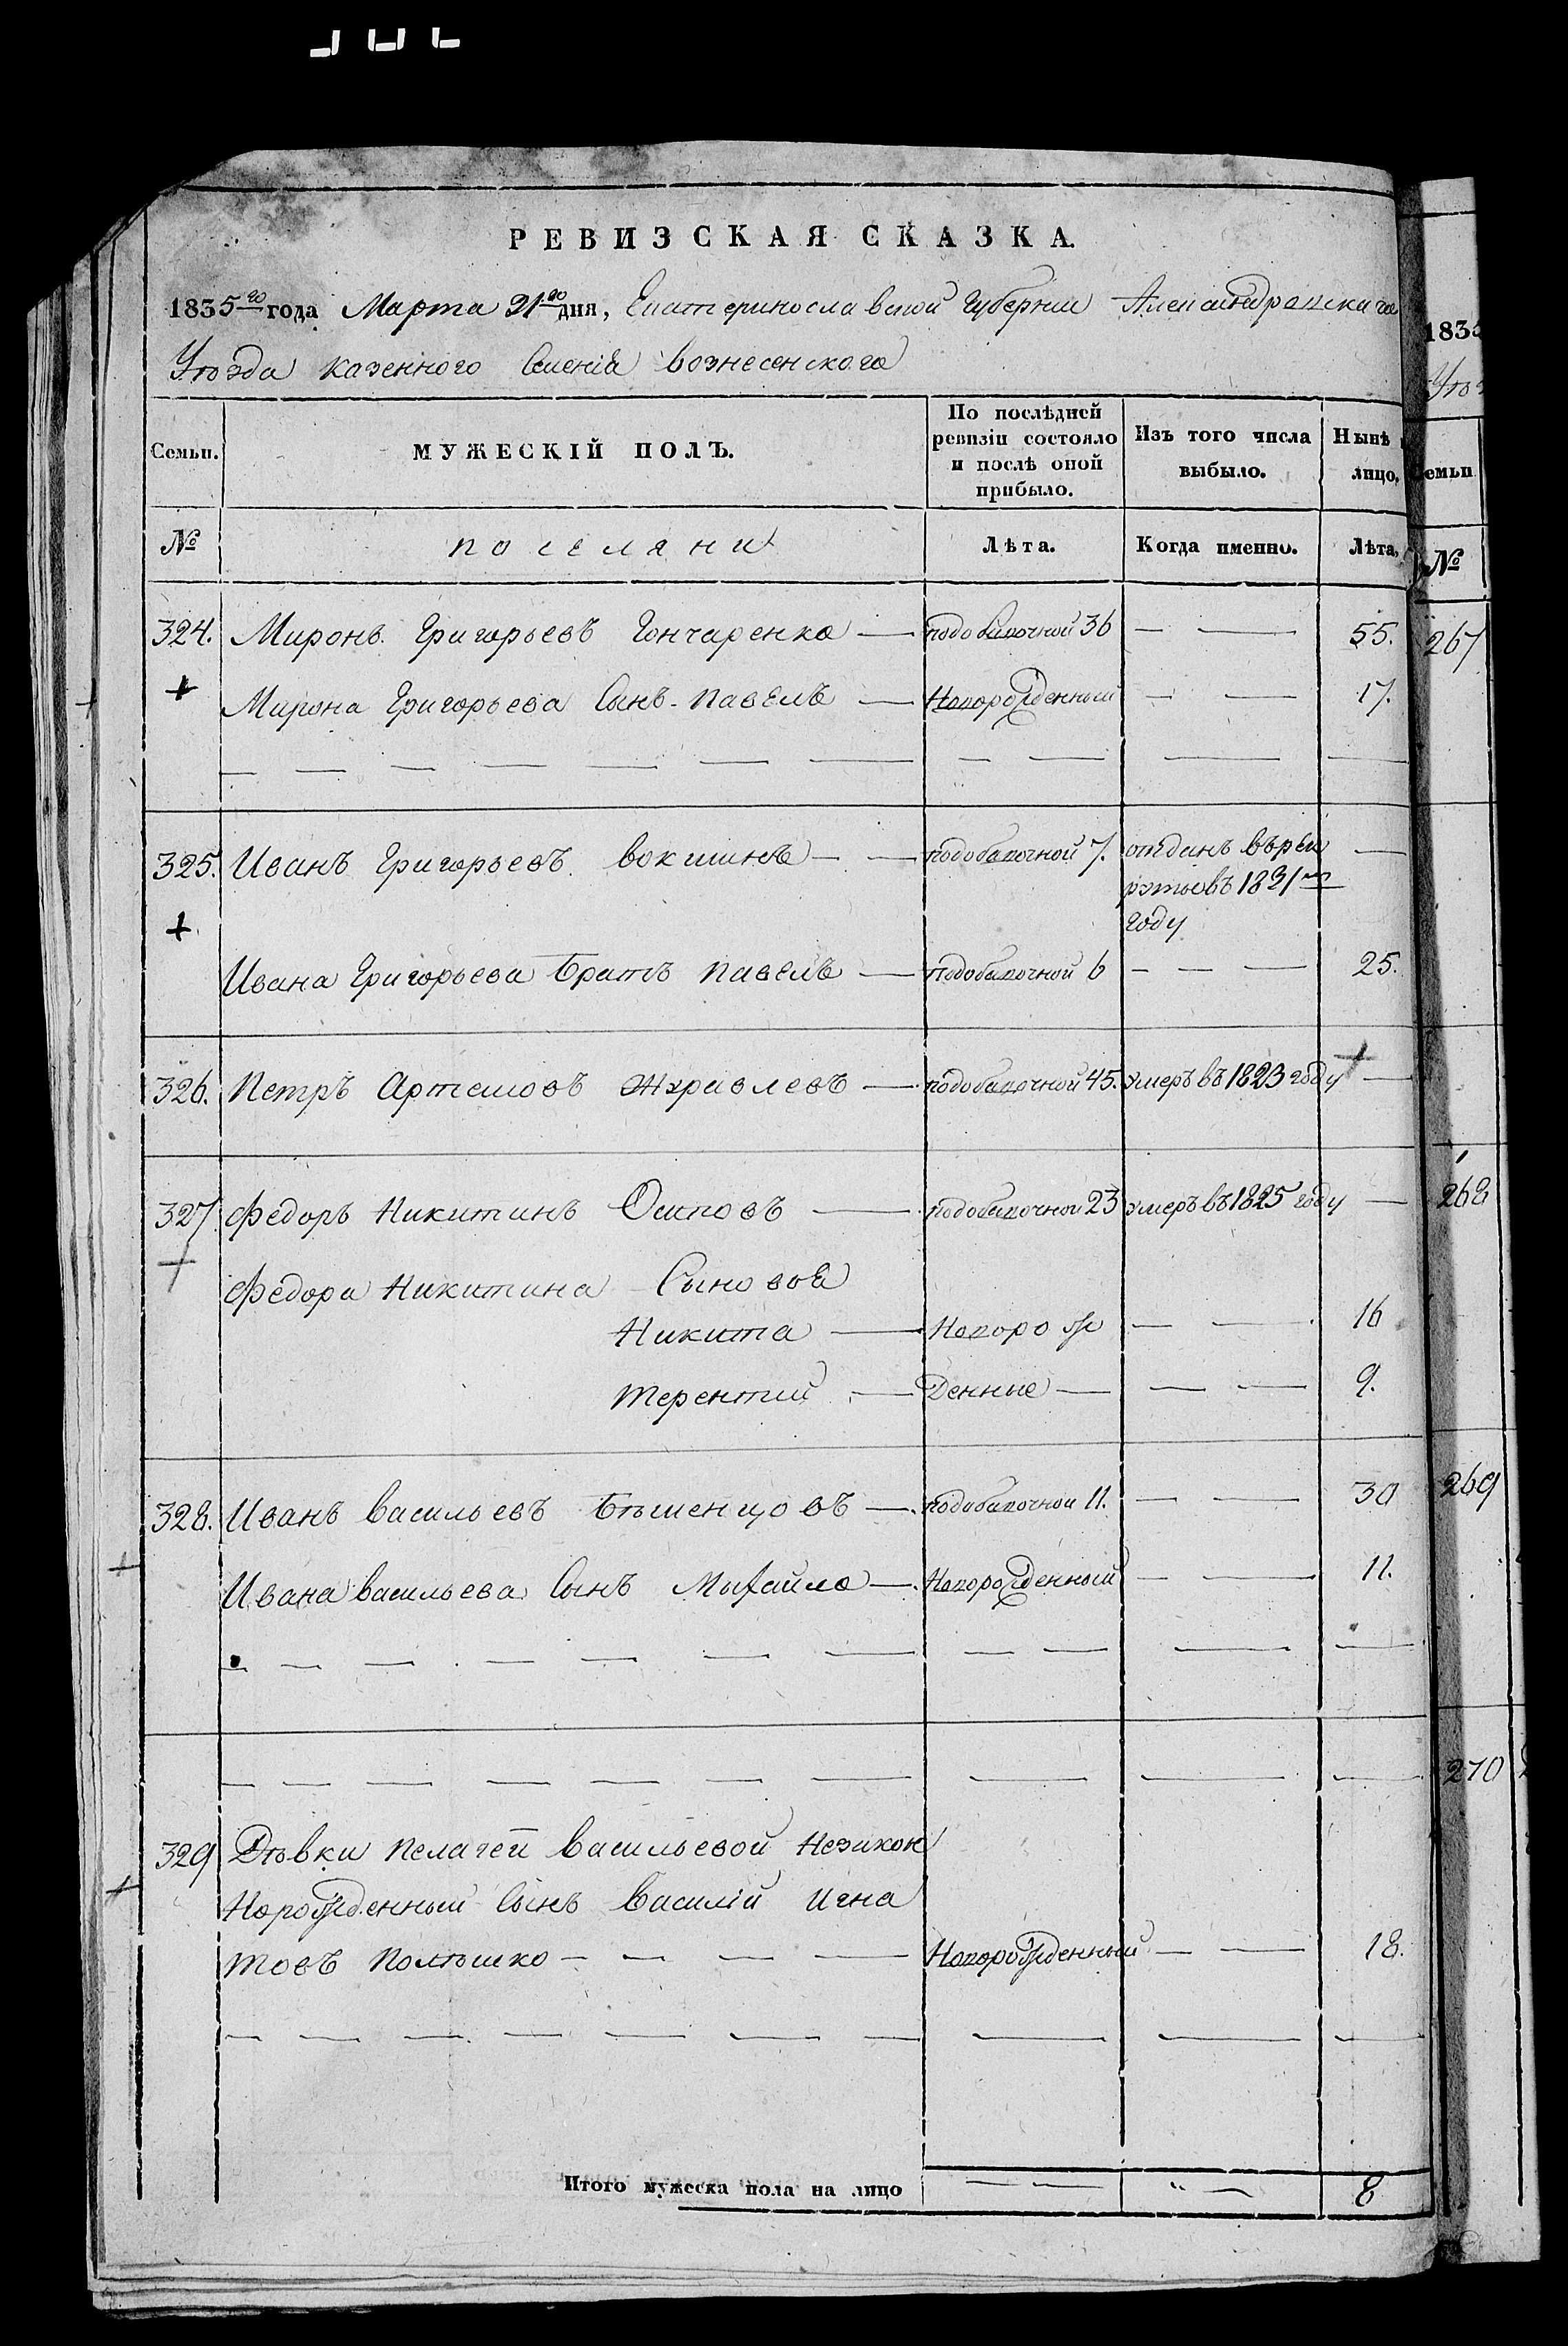 РЕВИЗСКАЯ СКАЗКА.
1835го года Марта 21го дня, Екатеринославской Губернии Александровскаго
Уѣзда казенного Селенія Вознесенского
Семьи. МУЖЕСКІЙ ПОЛЪ. По послѣдней ревизіи состояло и послѣ оной прибыло. Изъ того числа выбыло. Нынѣ лицо.
№ поселяни Лѣта. Когда именно. Лѣта.
324. Миронъ Григорьевъ Гончаренко — подобапочной 36 — — 55.
Мирона Григорьева Сынъ Павелъ — Новорожденный — — 17.
325. Иванъ Григорьевъ — — 7. отданъ въ рек
рутывъ 1831м —
году
Ивана Григорьева Братъ Павелъ — 6 — — — 25.
326. Петръ Артемовъ Журавлевъ — 45. умеръ въ 1823 году —
327. Федоръ Никитинъ Осиповъ — 23 умеръ въ 1825 году —
Федора Никитина Сыновья
Никита — Новорож — — 16
Терентий — денные — — — 9.
328. Иванъ Васильевъ Бѣшенцовъ — 11. — — 30
Ивана Васильева Сынъ Михайло — Новорожденный — — 11.
329 Дѣвки Пелагеи Васильевой
Норожденный Сынъ Василій Игна
товъ — — — — Новорожденный — — 18.
Итого мужеска пола на лицо — — „ — 8
1835
Уѣз
Семьи
№
267
268
269
270